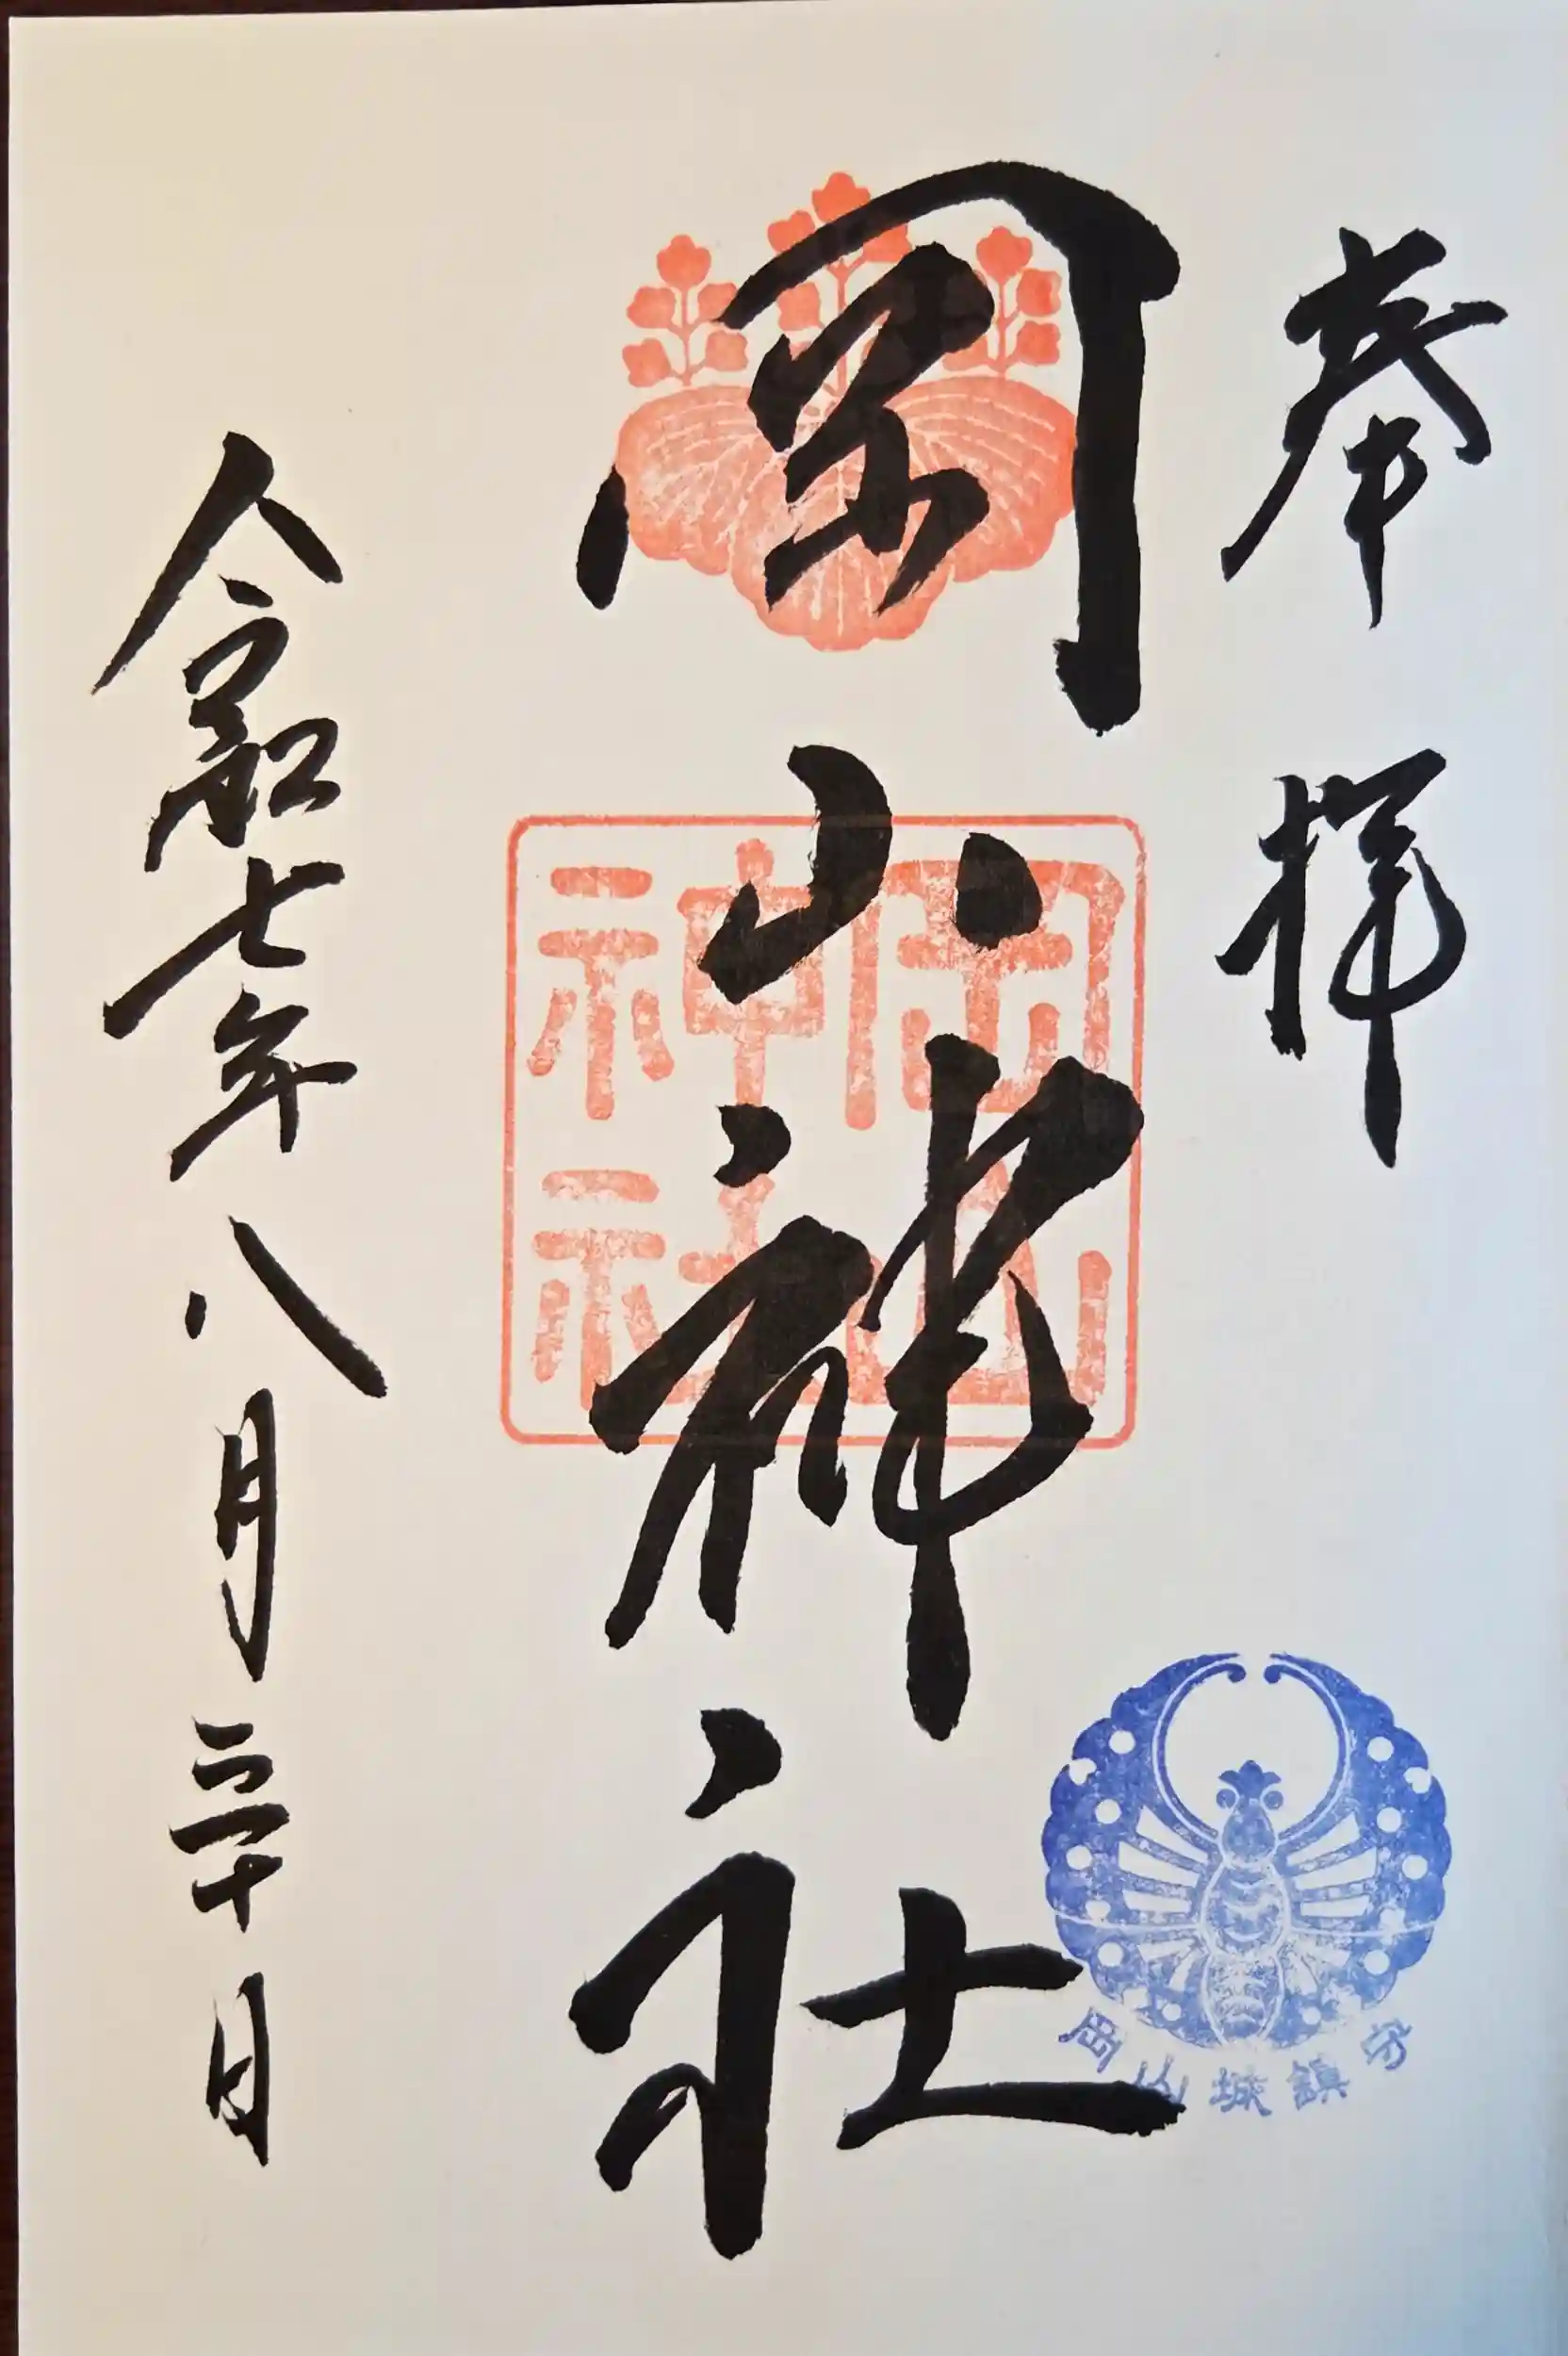 奉拝
岡山神社
岡山
神社
岡山城鎮守
令和七年八月三十日